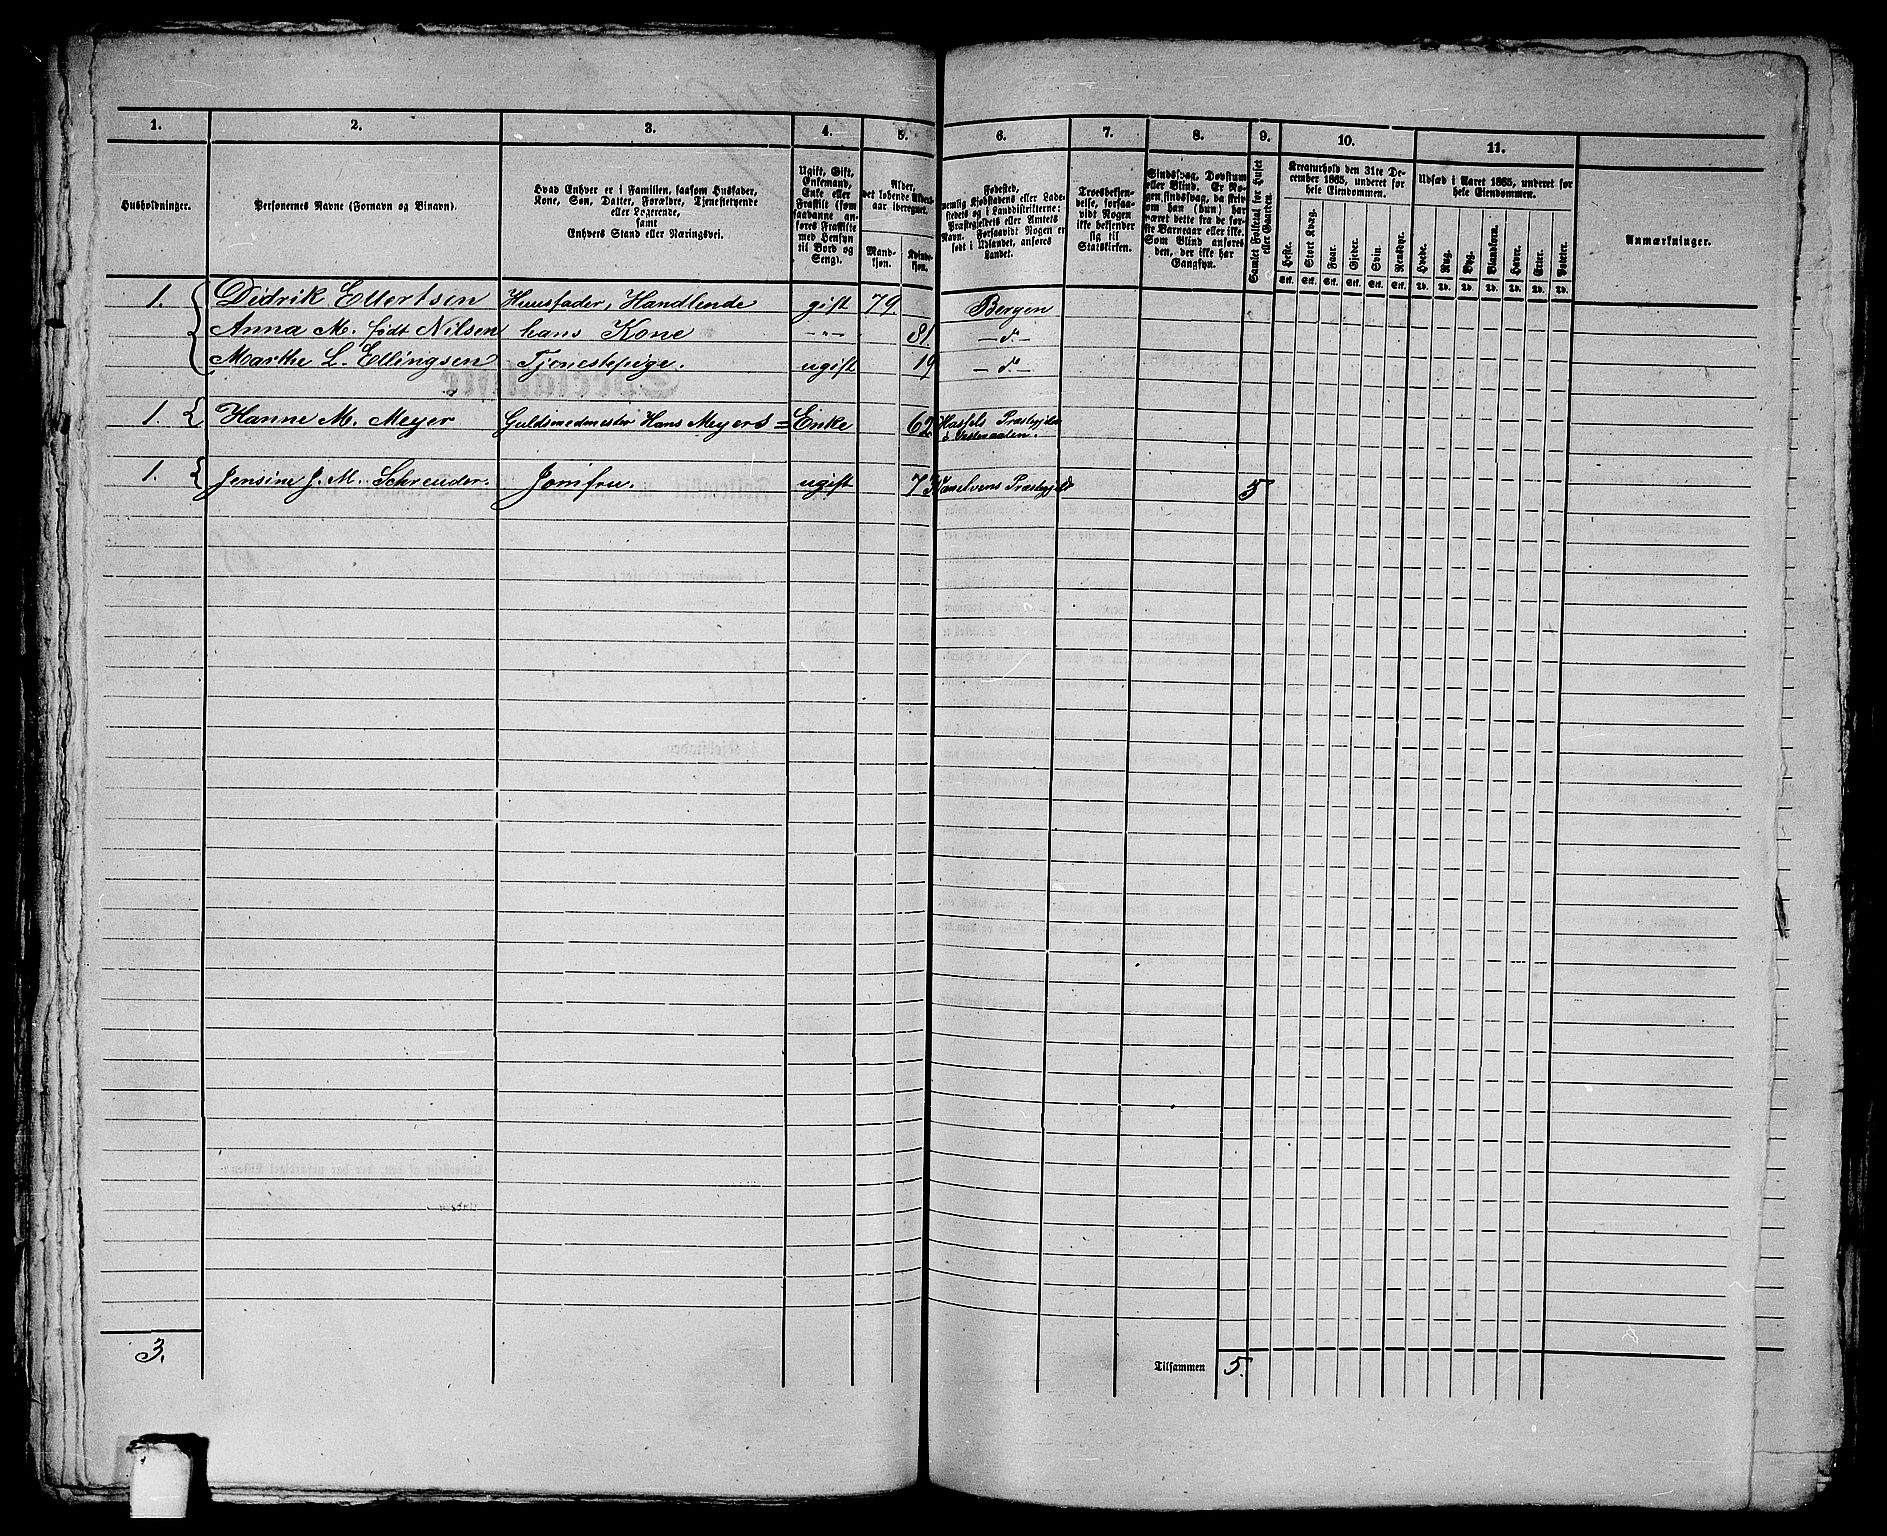 1. 2. 3. 4. 5. 6. 7. 8. 9. 10. 11.
Husholdninger.
Personernes Navne (Fornavn og Binavn).
Hvad Enhver er i Familien, saasom Husfader,
Kone, Søn, Datter, Forældre, Tjenestetyende
eller Logerende,
samt
Enhvers Stand eller Næringsvei.
Ugift, Gift,
Enkemand,
Enke eller
Fraskilt (som
saadanne an-
føres Fraskilte
med Hensyn
til Bord og
Seng).
Alder,
det løbende Alders-
aar iberegnet.
Mand-
kjøn.
Kvinde-
kjøn.
Fødested,
nemlig Kjøbstadens eller Lade-
stedets og i Landdistrikterne:
Præstegjeldets eller Amtets
Navn. Forsaavidt Nogen er
født i Udlandet, anføres
Landet.
Troesbekjen-
delse, forsaa-
vidt Nogen
ikke bekjender
sig til
Statskirken.
Sindssvag, Døvstum
eller Blind. Er No-
gen sindssvag, da skriv
om han (hun) har
været dette fra de før-
ste Barneaar eller ikke.
Som Blind anføres
den, der ikke har
Gangsyn.
Samlet Folketal for Huset
eller Gaarden.
Kreaturhold den 31te De-
cember 1865, underet for
hele Eiendommen.
Heste. Stort Kvæg. Faar. Gjeder. Svin. Rensdyr.
Stk. Stk. Stk. Stk. Stk. Stk.
Udsæd i Aaret 1865, underet for
hele Eiendommen.
Hvede. Rug. Byg. Blandkorn. Havre. Erter. Poteter.
Td. Td. Td. Td. Td. Td. Td.
Anmærkninger.
1. Didrik Ellertsen Huusfader, Handlende gift 79. Bergen
Anna M. født Nilsen hans Kone -"- 81. - d° -
Marthe L. Ellingsen Tjenestepige. ugift 19 - d° -
1. Hanne M. Meyer Guldsmedmester Hans Meyers = Enke 62. Hassels Præstegjeld
1. Jensine J. M. Schreuder. Jomfru. ugift Præstegjeld 5
3. Tilsammen 5.